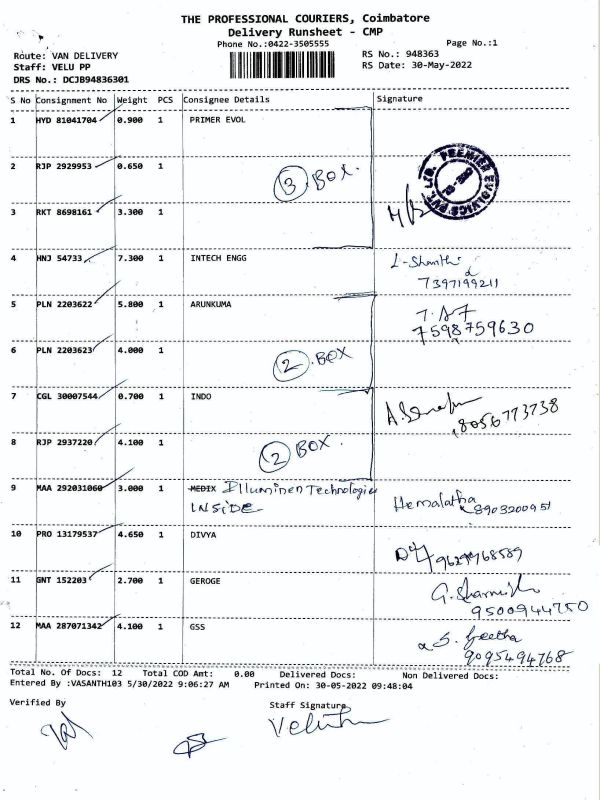 THE PROFESSIONAL COURIERS, Coimbatore
Delivery Runsheet - CMP
Phone No.:0422-3505555
Page No.:1
Route: VAN DELIVERY
Staff: VELU PP
DRS No.: DCJB94836301
RS No.: 948363
RS Date: 30-May-2022
S No Consignment No Weight PCS Consignee Details Signature
1 HYD 81041704 0.900 1 PRIMER EVOL
2 RJP 2929953 0.650 1
3 BOX.
PREMIER EVOLVICS PVT. LTD.
3 RKT 8698161 3.300 1
4 HNJ 54733 7.300 1 INTECH ENGG L-Shanthi
7397199211
5 PLN 2203622 5.800 1 ARUNKUMA
7598759630
6 PLN 2203623 4.000 1
2 BOX
7 CGL 30007544 0.700 1 INDO
8056773738
8 RJP 2937220 4.100 1
2 BOX.
9 MAA 292031060 3.000 1 MEDIX Illuminen Technologies
INSIDE
Hemalatha
8903200951
10 PRO 13179537 4.650 1 DIVYA
11 GNT 152203 2.700 1 GEROGE
9500944750
12 MAA 287071342 4.100 1 GSS S. Geetha
9095494768
Total No. Of Docs: 12 Total COD Amt: 0.00 Delivered Docs: Non Delivered Docs:
Entered By :VASANTH103 5/30/2022 9:06:27 AM Printed On: 30-05-2022 09:48:04
Verified By
Staff Signature